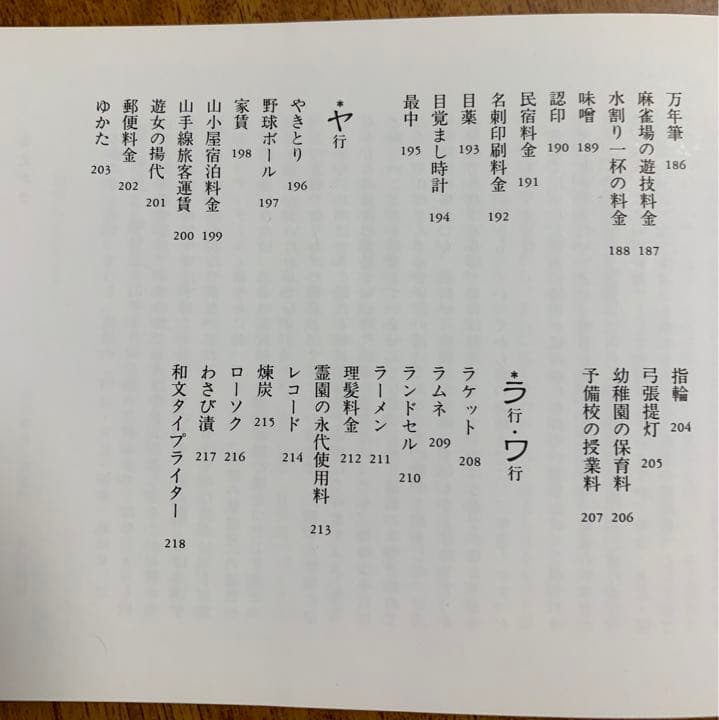 万年筆 186
麻雀場の遊技料金 187
水割り一杯の料金 188
味噌 189
認印 190
民宿料金 191
名刺印刷料金 192
目薬 193
目覚まし時計 194
最中 195
*ヤ行
やきとり 196
野球ボール 197
家賃 198
山小屋宿泊料金 199
山手線旅客運賃 200
遊女の揚代 201
郵便料金 202
ゆかた 203
指輪 204
弓張提灯 205
幼稚園の保育料 206
予備校の授業料 207
*ラ行・ワ行
ラケット 208
ラムネ 209
ランドセル 210
ラーメン 211
理髪料金 212
霊園の永代使用料 213
レコード 214
煉炭 215
ローソク 216
わさび漬 217
和文タイプライター 218